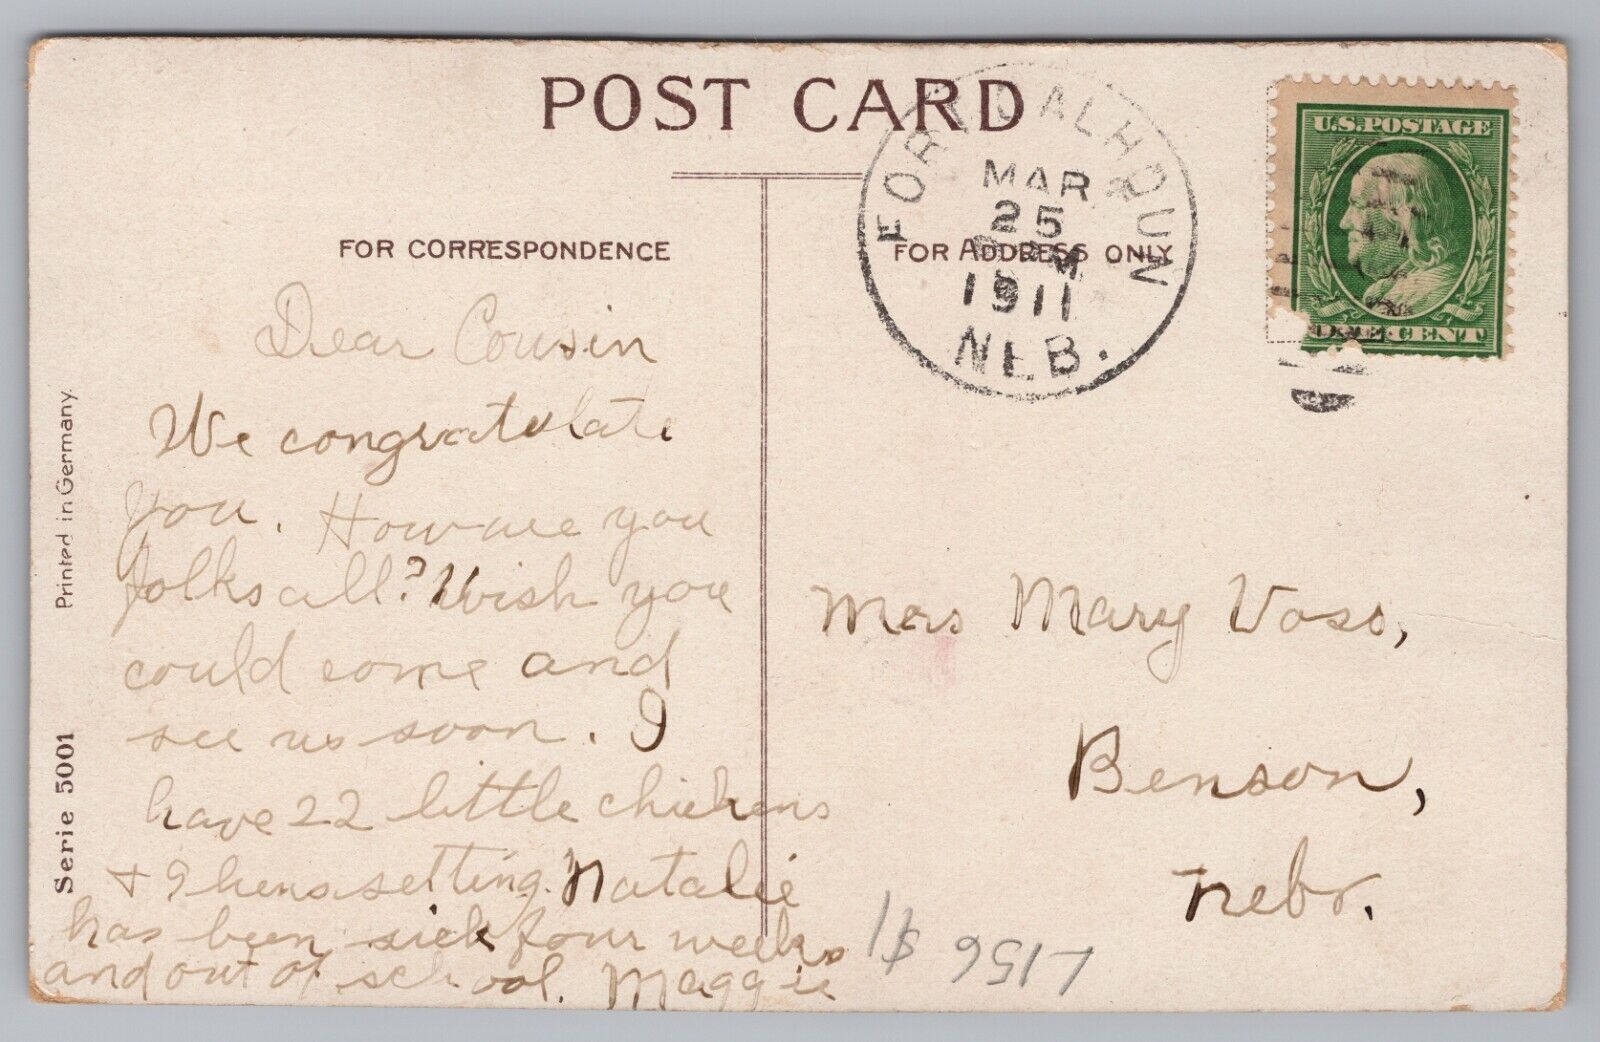 POST CARD
FOR CORRESPONDENCE
FOR ADDRESS ONLY
FORT CALHOUN
MAR
25
PM
1911
NEB.
U.S. POSTAGE
ONE CENT
Dear Cousin
We congratulate
you. How are you
folks all? Wish you
could come and
see us soon. I
have 22 little chickens
+ 9 hens setting. Natalie
has been sick four weeks
and out of school. Maggie
Mrs Mary Voss,
Benson,
Nebr.
Printed in Germany.
Serie 5001
L156 $1